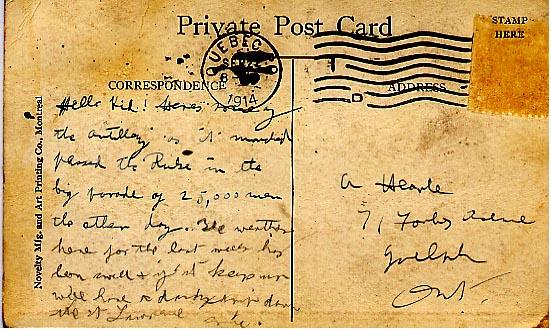 Private Post Card
STAMP
HERE
QUEBEC
SEP
8
1914
CORRESPONDENCE
ADDRESS
Hello Kid! Heres some of
the artillery as it marched
passed the Duke in the
big parade of 25,000 men
the other day. The weather
here for the last week has
been swell & if it keeps up
will have a dandy trip down
the St Lawrence
A Hearle
71 Forbes Avenue
Guelph
Ont.
Novelty Mfg. and Art Printing Co., Montreal